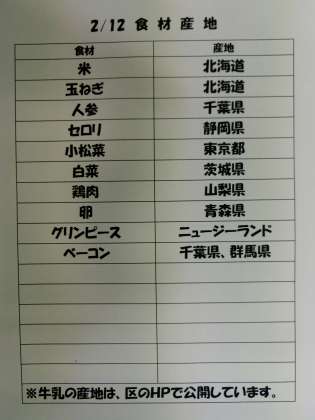 2/12 食材産地
食材 産地
米 北海道
玉ねぎ 北海道
人参 千葉県
セロリ 静岡県
小松菜 東京都
白菜 茨城県
鶏肉 山梨県
卵 青森県
グリンピース ニュージーランド
ベーコン 千葉県、群馬県
※牛乳の産地は、区のHPで公開しています。